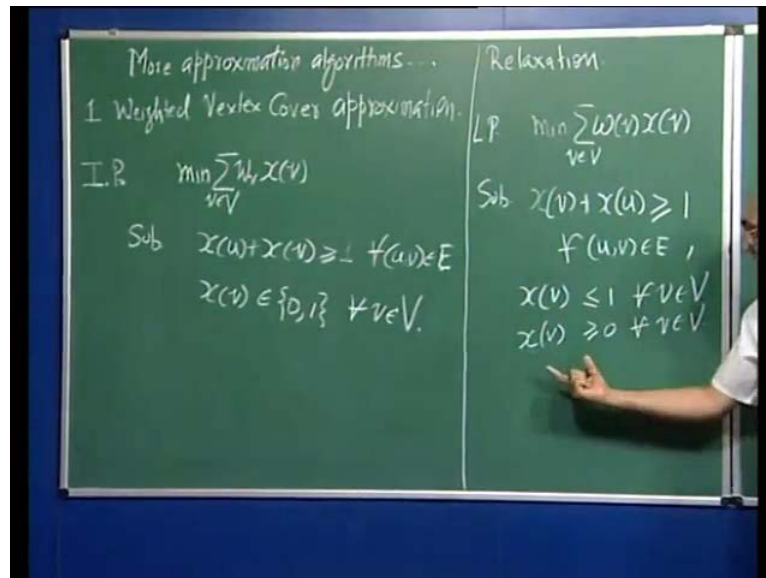 More approximation algorithms...
1 Weighted Vertex Cover approximation.
I.P. min ∑ W_v x(v)
v∈V
Sub x(u)+x(v) ≥ 1 ∀(u,v)∈E
x(v) ∈ {0,1} ∀ v∈V.
Relaxation.
LP. min ∑ w(v)x(v)
v∈V
Sub x(v)+x(u) ≥ 1
∀ (u,v)∈E ,
x(v) ≤ 1 ∀ v∈V
x(v) ≥ 0 ∀ v∈V